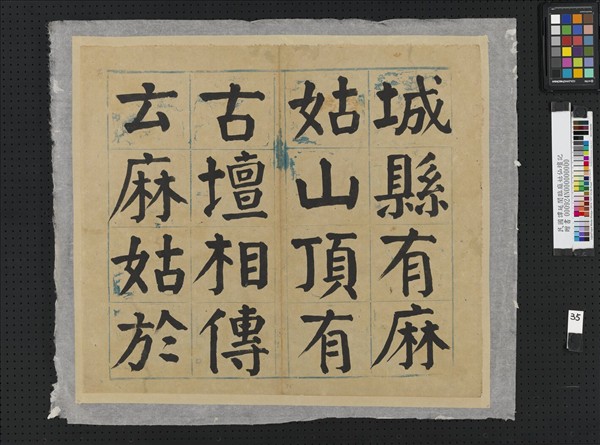 城縣有麻
姑山頂有
古壇相傳
云麻姑於
35